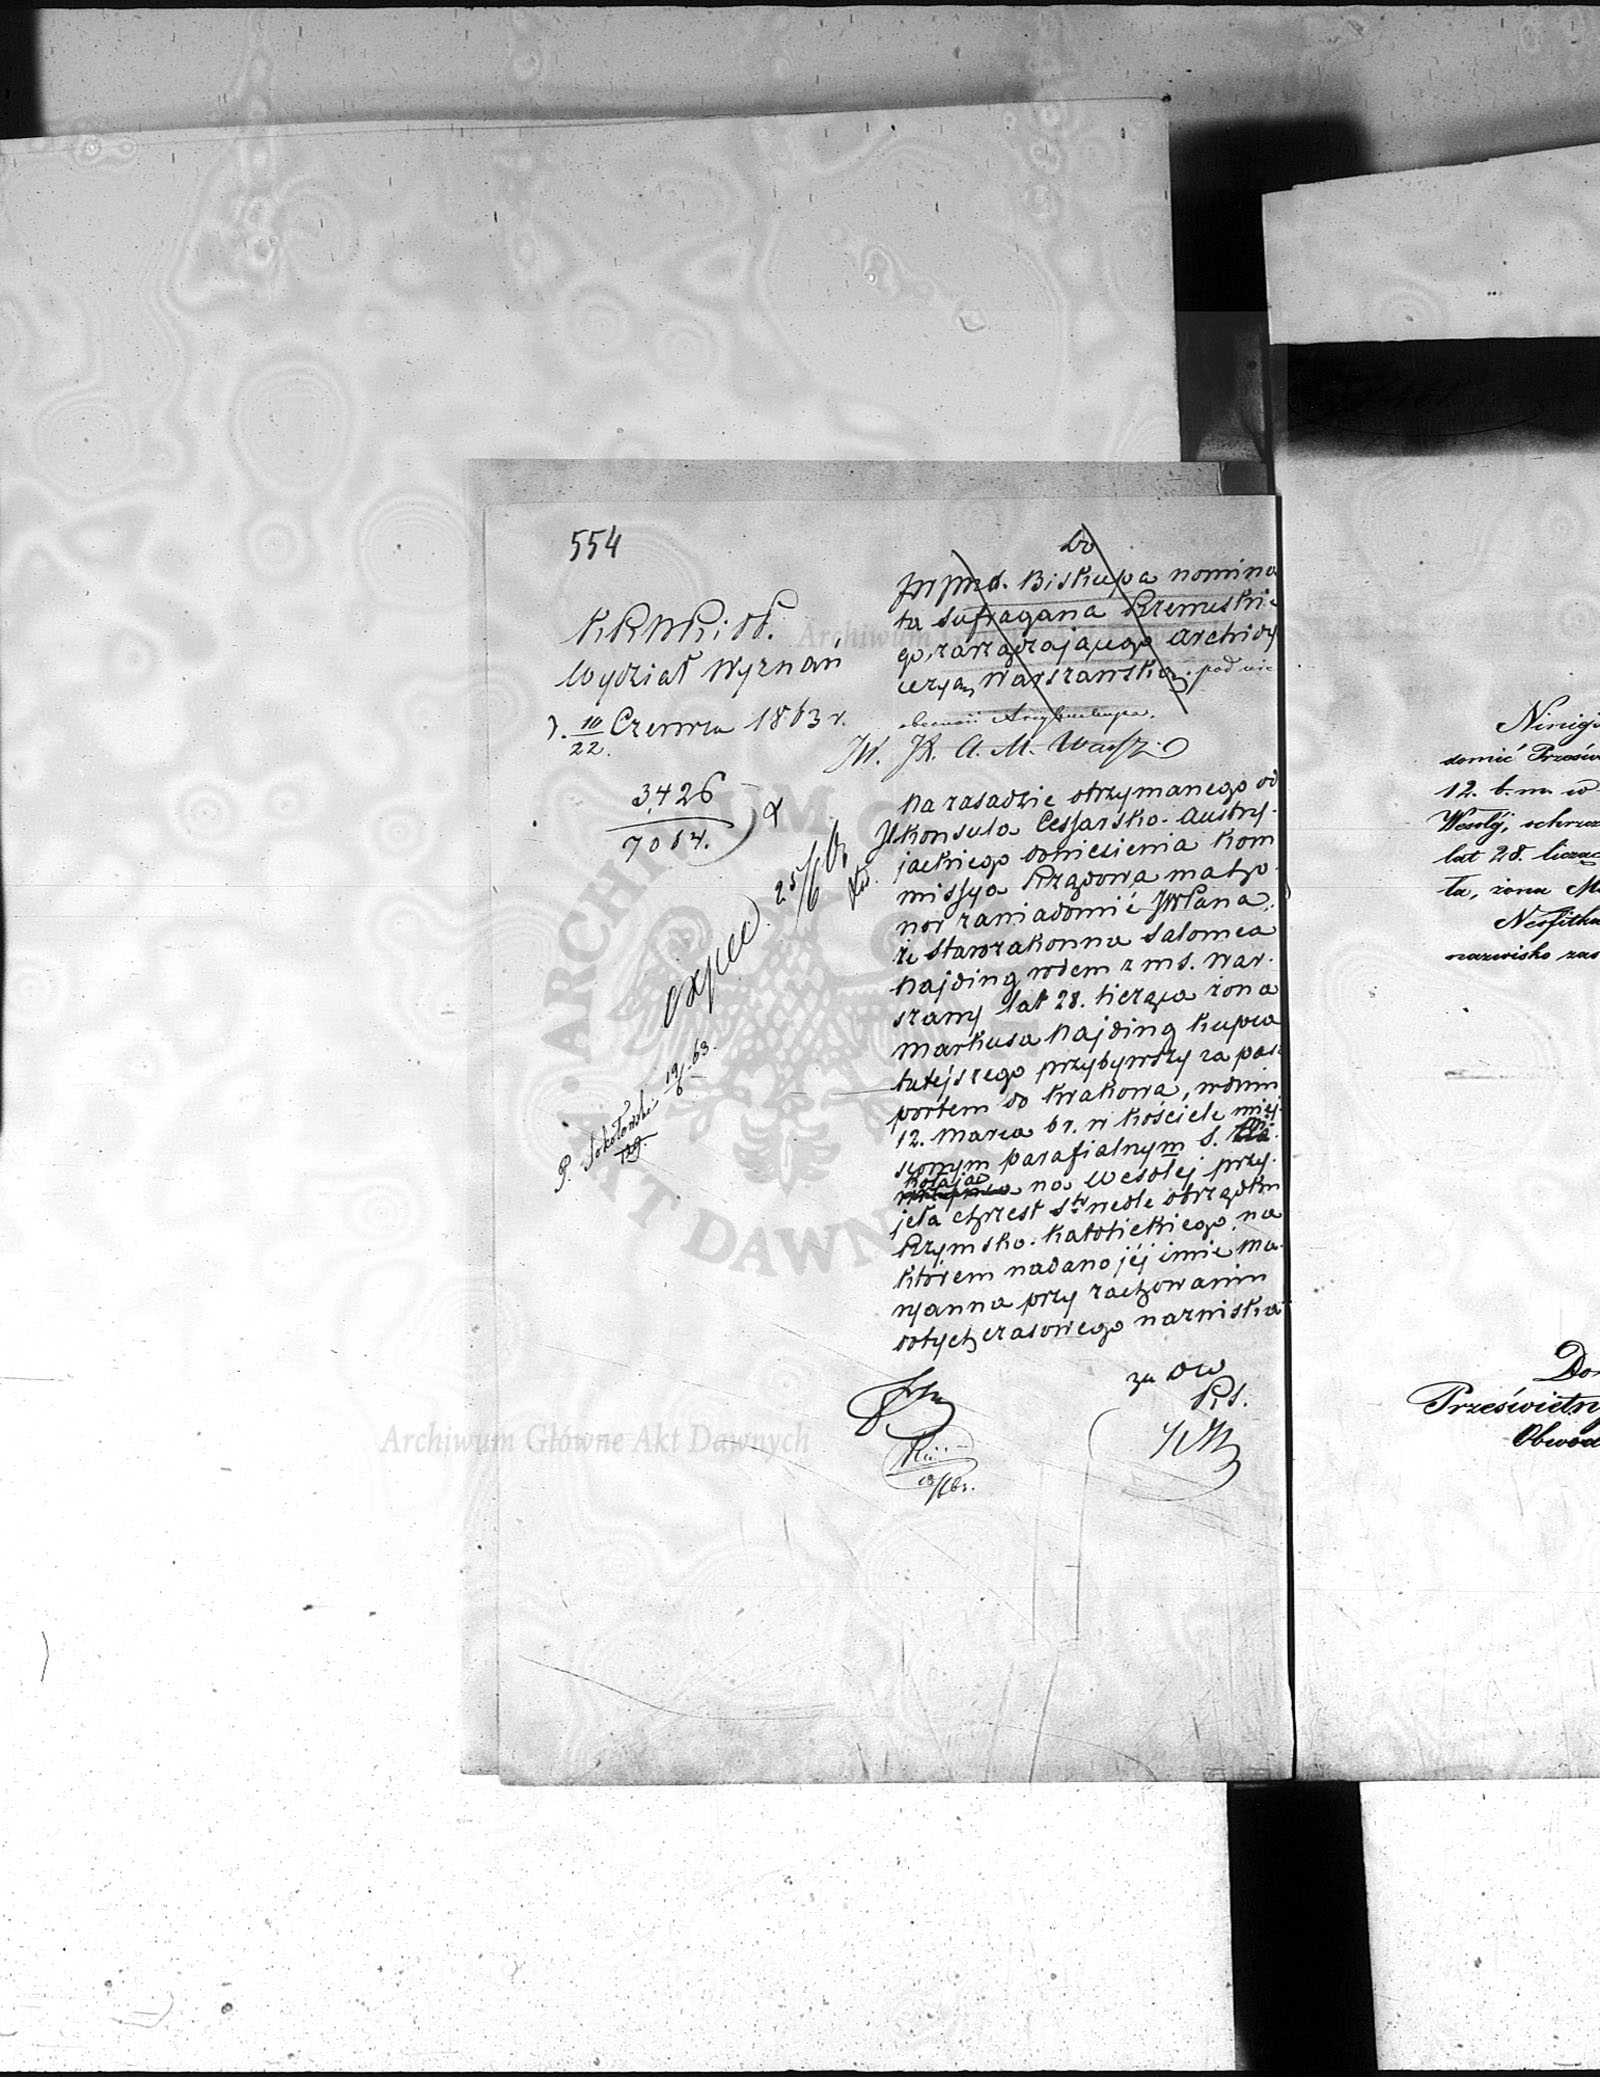 554
KRWRiOP.
Wydział Wyznań
D. 10/22 Czerwca 1863 r.
3,426
7014.
exped. 25/6
P. Sokołowski 19/6 63.
Do
JWJmX. Biskupa nomina
ta Sufragana
go, zarządzającego Archidy
cezyą Warszawską, pod nie
obecność Arcybiskupa.
Na zasadzie otrzymanego od
JKonsula Cesarsko-Austry-
jackiego doniesienia Kom
missya Rządowa ma ho-
nor zawiadomić JWPana,
że Starozakonna Salomea
Najding rodem z m s. War-
szawy lat 28. licząca żona
Markusa Najding kupca
tutejszego przybywszy za pas-
portem do Krakowa, w dniu
12. Marca b r. w kościele miej-
scowym parafialnym S. Mi
kołaja
na Wesołej przy-
jęła chrzest Sty wedle obrządku
Rzymsko-Katolickiego, na
którem nadano jéj imie Ma-
ryanna przy zachowaniu
dotychczasowego nazwiska
za DW
18/6 63.
Archiwum Główne Akt Dawnych
Niniejs
domić Prześw
12. b. m. w
Wesołéj, ochrzcz
lat 28. licząc
ta, żona Ma
Neofitka
nazwisko zas
Do
Prześwietn
Obwod